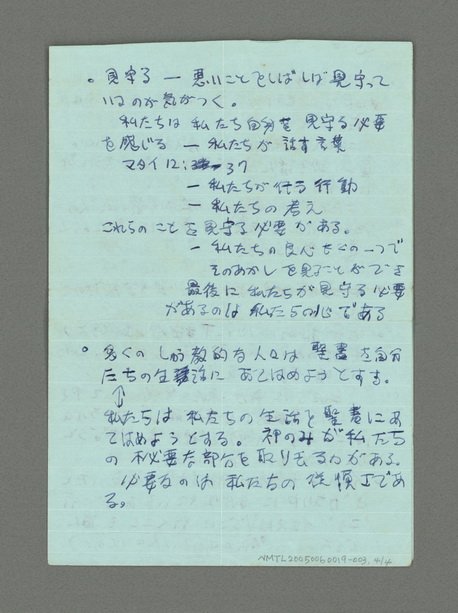 。見守る — 悪いことをしばしば見守って
いるのが気がつく。
私たちは私たち自分を見守る必要
を感じる — 私たちが話す言葉
マタイ12: 37
— 私たちが行う行動
— 私たちの考え
これらのことを見守る必要がある。
— 私たちの良心もその一つで
そのあかしを見ることができ
最後に私たちが見守る必要
があるのは私たちの心である
。多くのし的教的な人々は聖書を自分
たちの生活に あてはめようとする。
↕
私たちは私たちの生活を聖書にあ
てはめようとする。神のみが私たち
の不必要な部分を取り去る が ある。
必要なのは私たちの従順さであ
る。
NMTL20050060019-003. 4/4